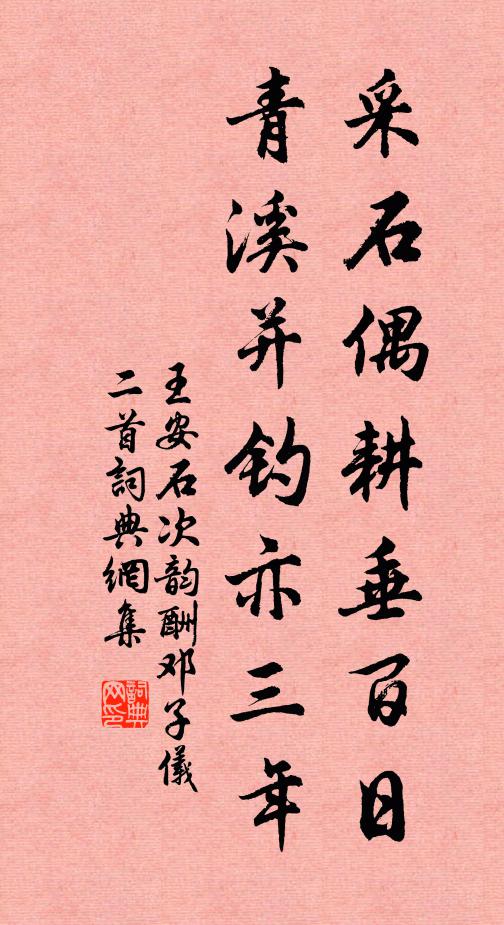 采石偶耕垂百日
青溪并钓亦三年
王安石次韵酬邓子儀
二首詞典網集
詞典
网印